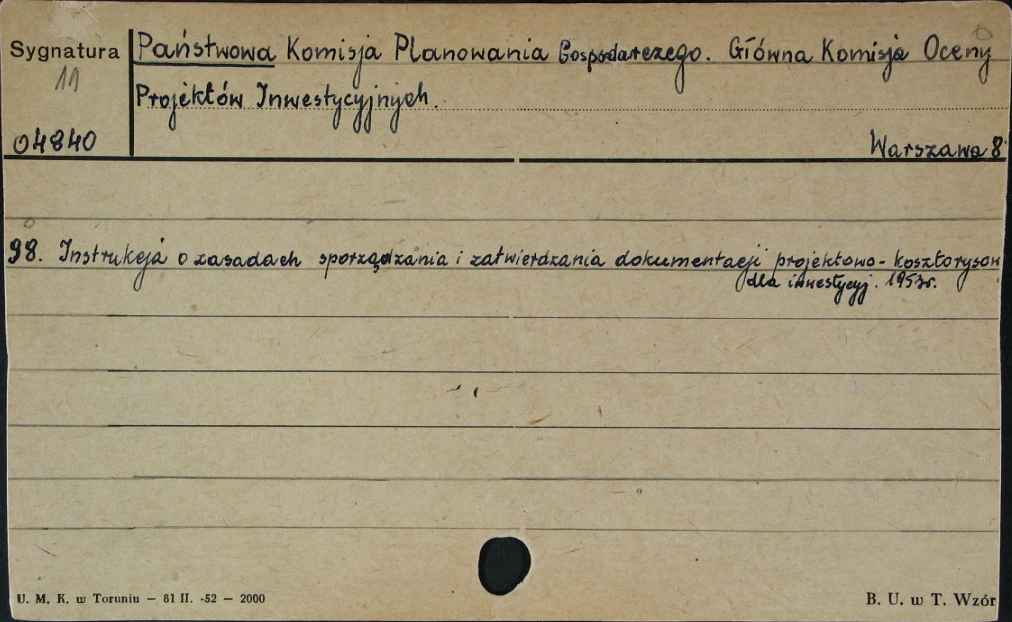 Sygnatura
11
04840
Państwowa Komisja Planowania Gospodarczego. Główna Komisja Oceny
Projektów Inwestycyjnych.
Warszawa 8
98. Instrukcja o zasadach sporządzania i zatwierdzania dokumentacji projektowo-kosztorysow
dla inwestycyj. 1953r.
U. M. K. w Toruniu — 81 II. -52 — 2000
B. U. w T. Wzór